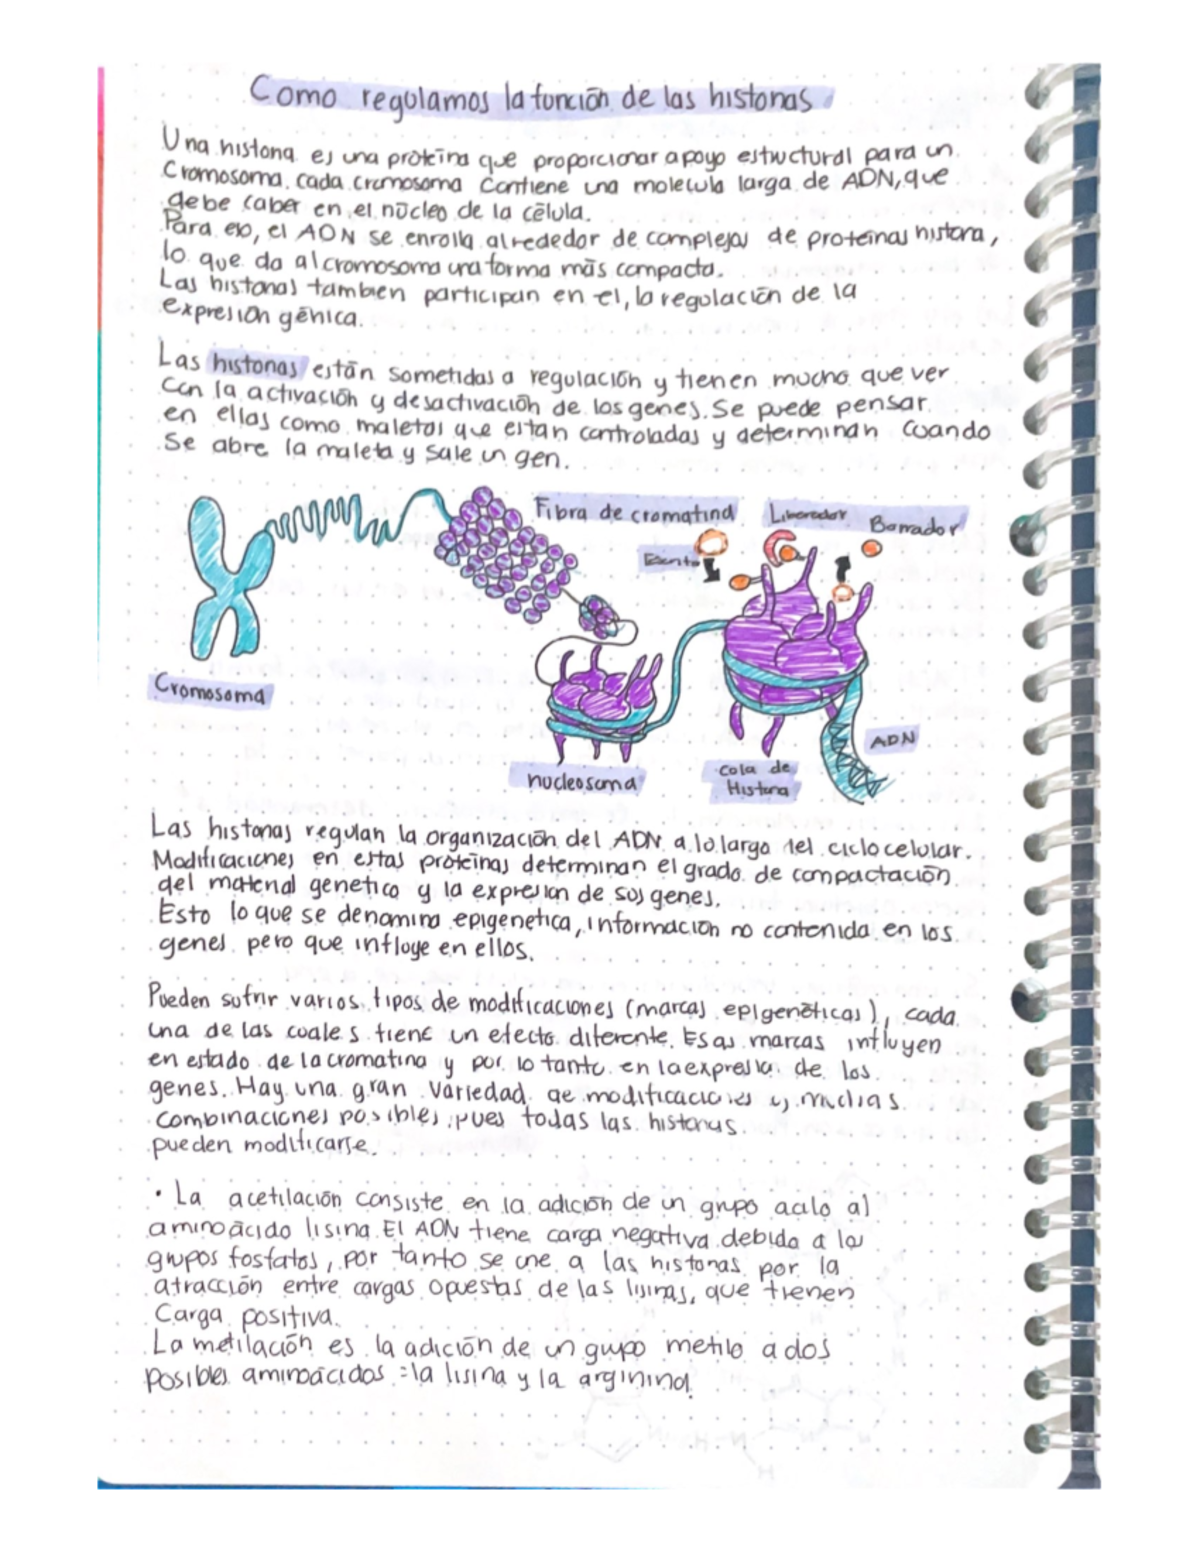 Como regulamos la función de las histonas
Una histona es una proteína que proporcionar apoyo estructural para un
Cromosoma. cada cromosoma contiene una molecula larga de ADN, que
debe caber en el núcleo de la célula.
Para ello, el ADN se enrolla alrededor de complejos de proteínas histona,
lo que da al cromosoma una forma más compacta.
Las histonas tambien participan en el, la regulación de la
expresión génica.
Las histonas están sometidas a regulación y tienen mucho que ver
con la activación y desactivación de los genes. Se puede pensar
en ellas como maletas que estan controladas y determinan cuando
se abre la maleta y sale un gen.
Fibra de cromatina
Liberador
Borrador
Cromosoma
nucleosoma
Cola de
Histona
ADN
Las histonas regulan la organización del ADN a lo largo del ciclo celular.
Modificaciones en estas proteínas determinan el grado de compactación
del material genetico y la expresion de sus genes.
Esto lo que se denomina epigenetica, información no contenida en los
genes pero que influye en ellos.
Pueden sufrir varios tipos de modificaciones (marcas epigenéticas), cada
una de las cuales tiene un efecto diferente. Esas marcas influyen
en estado de la cromatina y por lo tanto en la expresion de los
genes. Hay una gran variedad de modificaciones y muchas
combinaciones posibles, pues todas las histonas
pueden modificarse.
• La acetilación consiste en la adición de un grupo acilo al
aminoácido lisina. El ADN tiene carga negativa debido a los
grupos fosfatos, por tanto se une a las histonas por la
atracción entre cargas opuestas de las lisinas, que tienen
Carga positiva.
La metilación es la adición de un grupo metilo a dos
posibles aminoácidos: la lisina y la arginina.